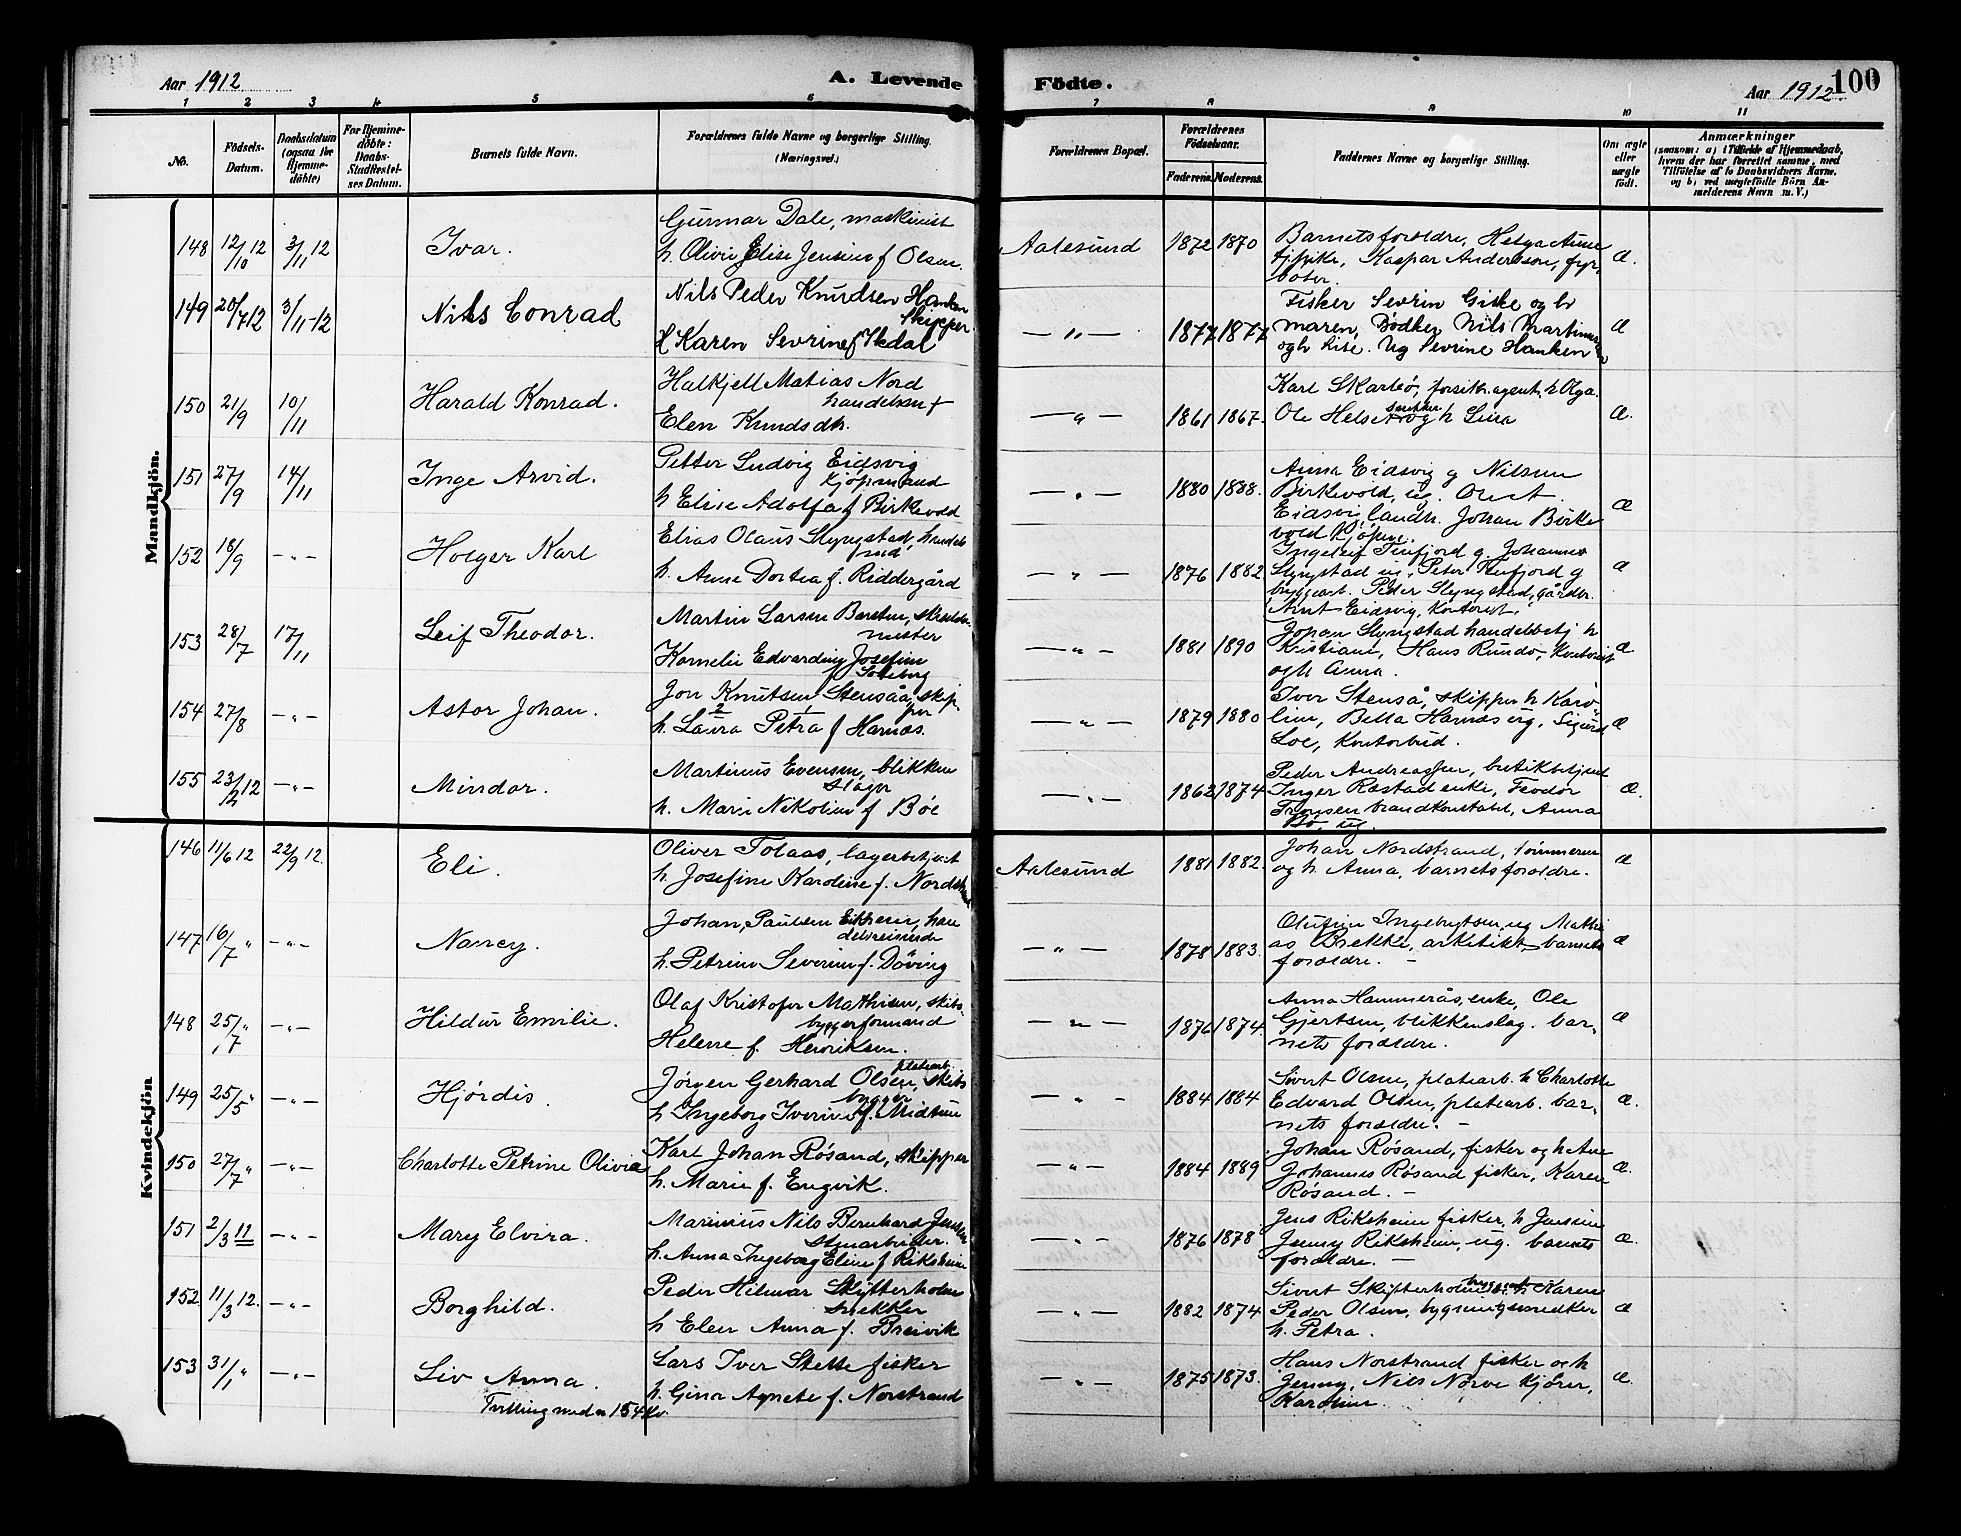 Aar 1912
A. Levende
Födte.
Aar 1912
100
1 2 3 4 5 6 7 8 9 10 11
No.
Födsels-
Datum.
Daabsdatum
(ogsaa for
Hjemme-
döbte)
For Hjemme-
döbte:
Daabs-
Stadfæstel-
ses Datum.
Barnets fulde Navn.
Forældrenes fulde Navne og borgerlige Stilling.
(Næringsvei.)
Forældrenes Bopæl.
Forældrenes
Födselsaar.
Faderens. Moderens.
Faddernes Navne og borgerlige Stilling.
Om ægte
eller
uægte
födt.
Anmærkninger
(saasom: a) i Tilfælde af Hjemmedaab,
hvem der har forrettet samme, med
Tilföielse af to Daabsvidners Navne.
og b) ved uægtefödte Börn An-
melderens Navn m. V.)
Mandkjön.
148 12/10 12 3/11 12 Ivar.
Gunnar Dale, maskinist
h. Olivi Elise Jensine f Olsen.
Aalesund 1872 1870
Barnets forældre, Helga Aune
frøike, Kaspar Anderssen, fyr-
bøter. Æ.
149 20/7 12 3/11-12 Nils Conrad
Nils Peder Knudsen Hanken
Skipper
H Karen Sevrine f Ikdal
— " — 1877 1877
Fisker Sevrin Giske og h
maren, Bødker Nils Martinusen
og h Lise. Ug Sevrine Hanken Æ
150 21/9 10/11 Harald Konrad.
Halkjell Matias Nord
handelsm f
Elen Knudsdtr.
— " — 1861 1867.
Karl Skarbø, forsikr. agent, h Olga.
Ole Helset snekker og h Lina Æ.
151 27/9 14/11 Inge Arvid.
Petter Ludvig Eidsvig
Kjøpmand
h Elise Adolfa f Birkevold
— " — 1880 1888.
Anna Eidsvig g Nilsine
Birkevold, ug. Olust.
Eidsvig, landh. Johan Birke
vold Kjøpm. Æ
152 18/9 — " — Holger Karl
Elias Olaus Slyngstad, handels
md
h. Anne Dortea f. Riddergård
— " — 1876 1882
Ingeleif Finfjord g. Johanne
Slyngstad ug, Peter Finfjord g
byggearb. Peder Slyngstad, gårdbr. Æ
153 28/7 17/11 Leif Theodor.
Martin Larsen Barsten, skredder
mester
Kornelie Edvardine Josefine
f Soleborg
— " — 1881 1890
Arnt Eidsvig, kontorist,
Johan Slyngstad handelsbetj h
Kristiane, Hans Rundø, Kontorist
og h Anna. Æ
154 27/8 — " — Astor Johan.
Jon Knutsen Stensåa, skip-
per
h. Laura Petra f Harnæs.
— " — 1879 1880
Iver Stenså, skipper h Karo-
line, Bella Harnæs ug, Sigurd
Loe, Kontorbud. Æ
155 23/2 12 — " — Mindor.
Martinus Evensen, blikken
slager
h. Marie Nikoline f Bøe
— " — 1862 1874
Peder Andreassen, butikbetjent
Inger Rastad enke, Feodor
Fronsen brandkonstabel, Anna
Bø, ug. Æ.
Kvindekjön
146 11/6 12 22/9 12. Eli.
Oliver Tolaas, lagerbetjent
h. Josefine Karoline f. Nordstrand
Aalesund 1881 1882.
Johan Nordstrand, tømmerm
og h Anna, barnets forældre. Æ
147 16/7 " — " — Nancy.
Johan Paulsen Eikherei, han
delsreisende
h. Petrine Severine f. Døving
— " — 1878 1883.
Olufine Ingebrigtsen, ug Mathi
as Brekke, arkitekt, barnets
forældre. — Æ
148 25/7 " — " — Hildur Emilie.
Olaf Kristofer Mathisen, skibs
byggerformand
Helene f. Henriksen.
— " — 1876 1874.
Anna Hammerås, enke, Ole
Gjertsen, blikkenslag. bar-
nets forældre. Æ
149 25/5 " — " — Hjørdis.
Jørgen Gerhard Olsen, platearb. skibs
bygger
h Ingeborg Iverine f. Midtun
— " — 1884 1884
Sivert Olsen, platearb. h Charlotte
Edvard Olsen, platearb. bar-
nets forældre. — Æ.
150 27/7 " — " — Charlotte Petrine Olivia
Karl Johan Røsand, skipper
h. Marie f. Engvik.
— " — 1884 1889
Johan Røsand, fisker og h Ane
Johannes Røsand fisker, Karen
Røsand. — Æ.
151 2/3 11 — " — Mary Elvira.
Marinius Nils Bernhard Jensen
Stenarbeider.
h. Anna Ingeborg Eline f Riksheim
— " — 1876 1878
Jens Riksheim fisker, h Jensine
Jenny Riksheim, ug. barnets
forældre. — Æ.
152 11/3 12. — " — Borghild.
Peder Hilmar Skytterholm
snekker
h Elen Anna f. Breivik
— " — 1882 1874
Sivert Skytterholm h Karen
Peder Olsen, bygningssnedker
h. Petra. Æ
153 31/1 " — " — Liv Anna.
Tvilling med nr 154 Kv.
Lars Iver Stette fisker
h. Gina Agnete f. Norstrand
— " — 1875 1873.
Hans Norstrand fisker og h
Jenny, Nils Nørve Kjører,
Karoline. Æ.